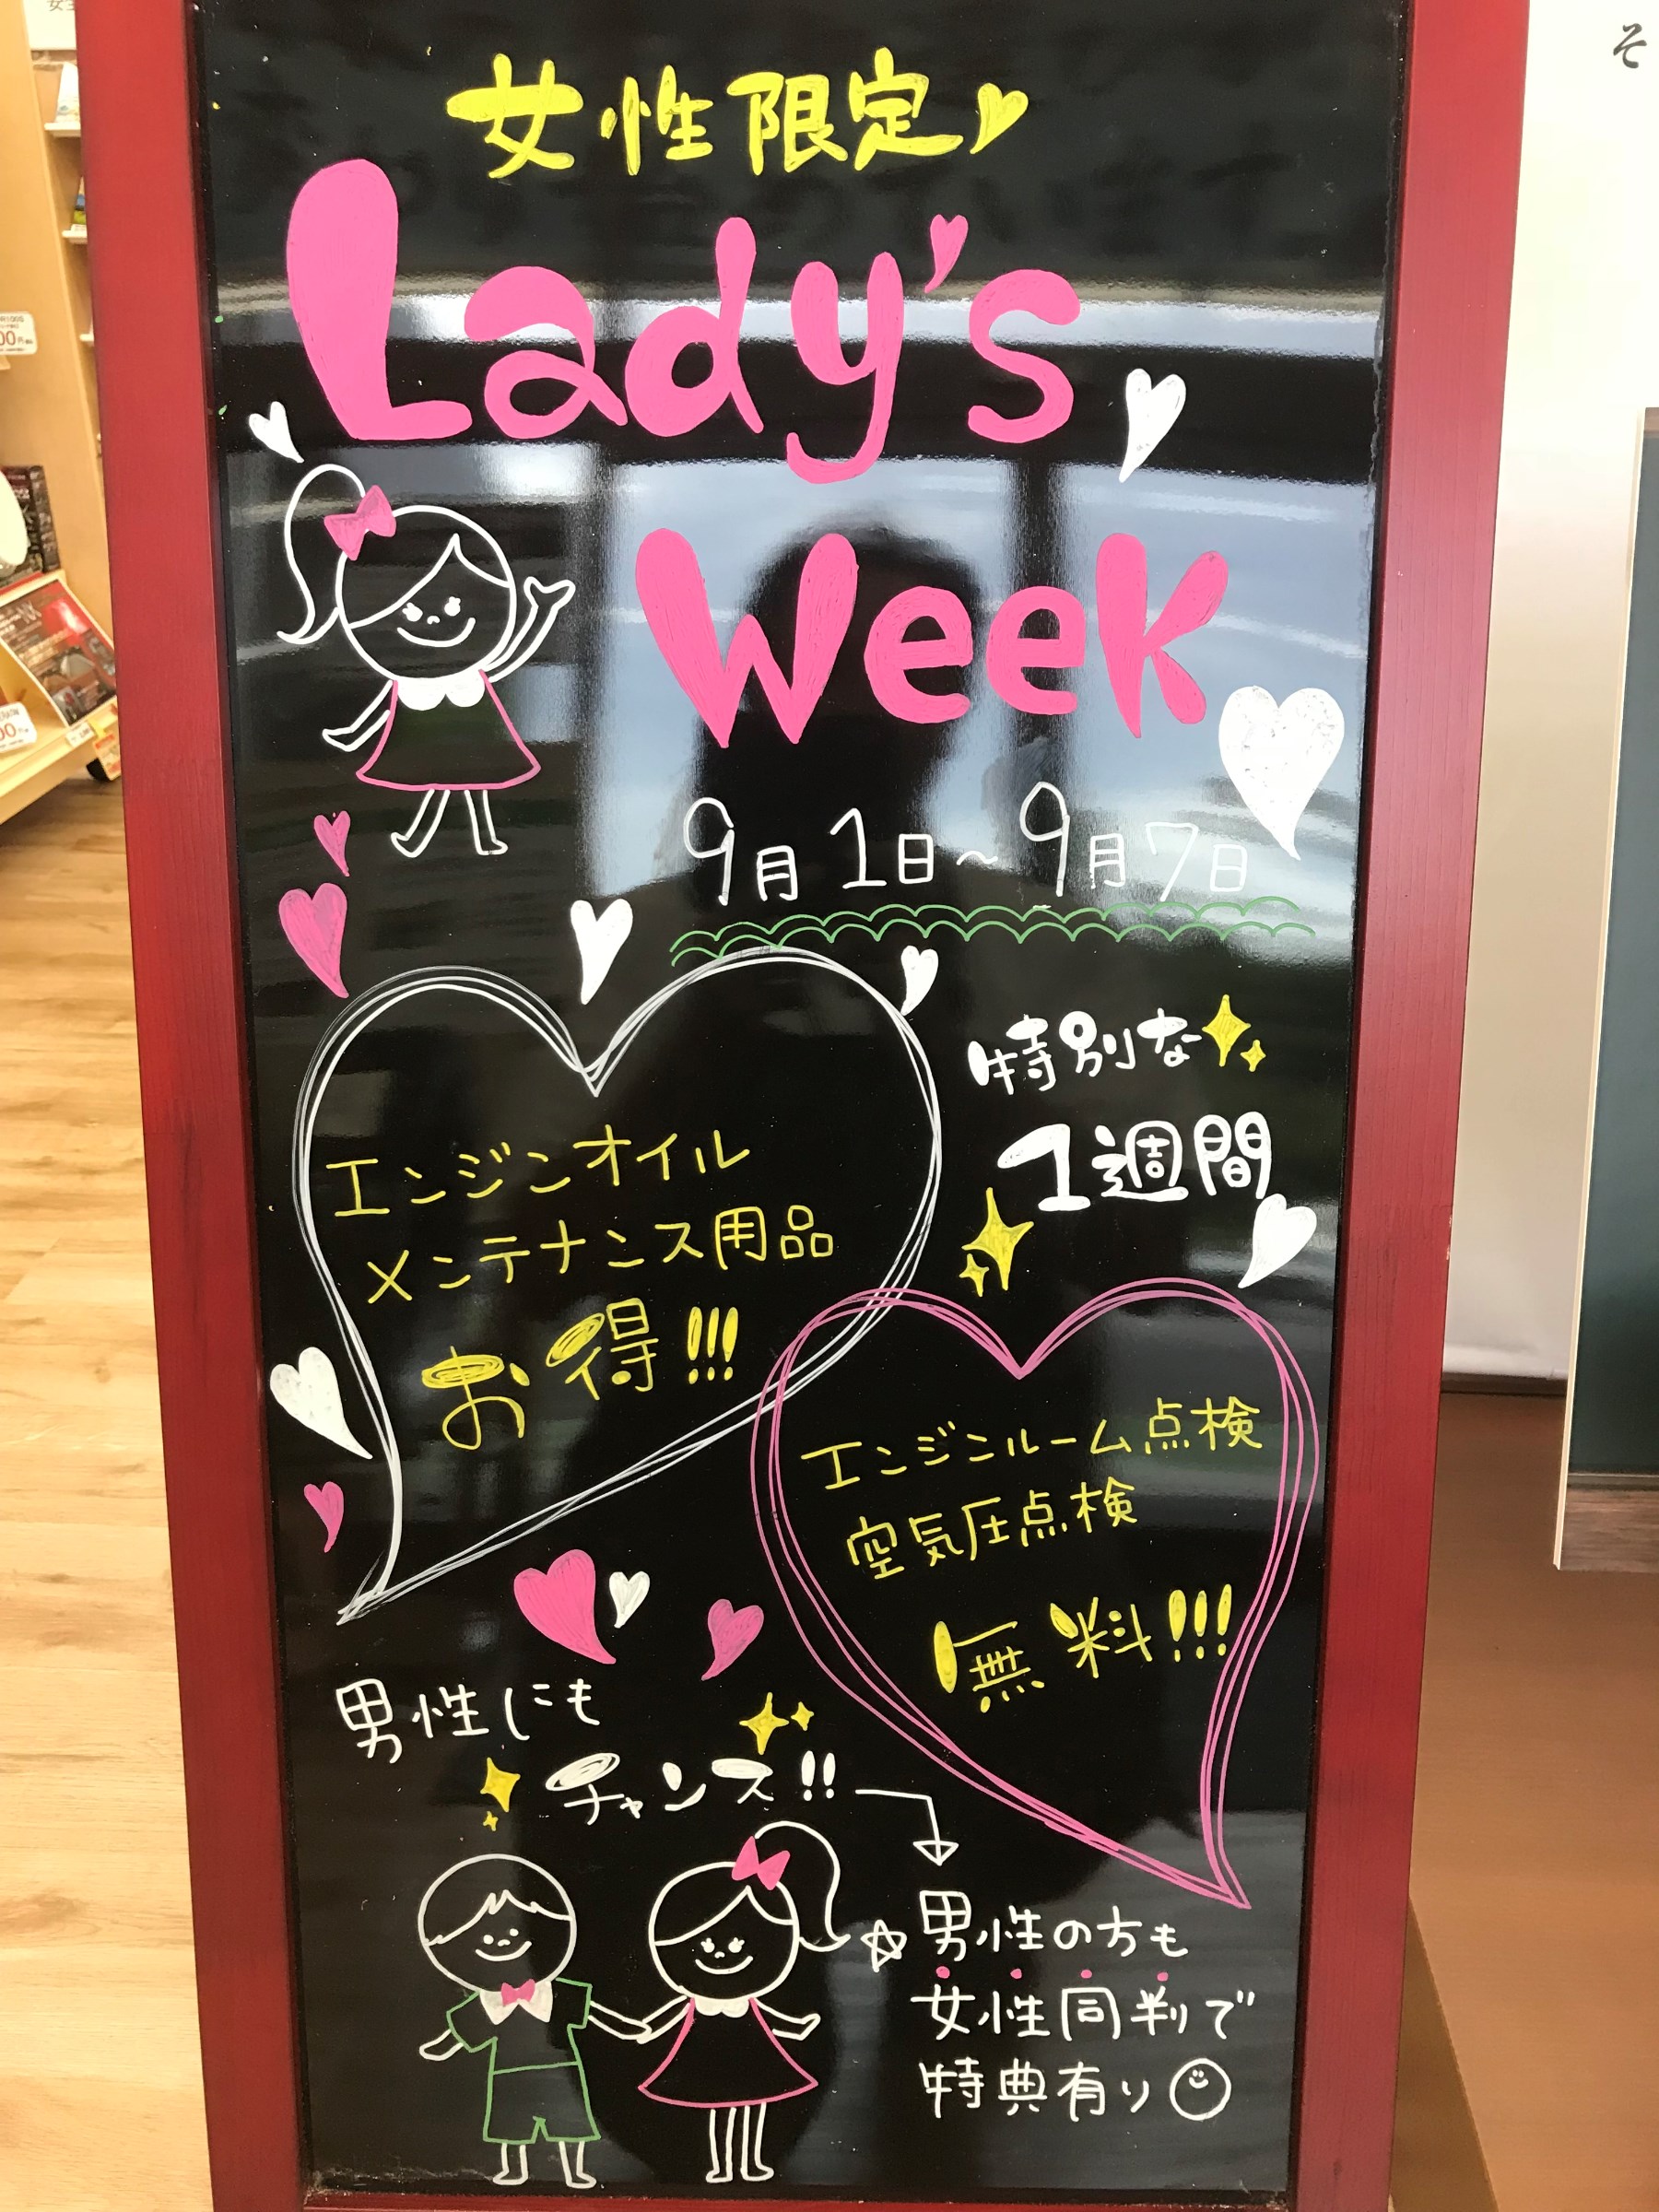 女性限定
Lady's
Week
9月1日~9月7日
特別な
1週間
エンジンオイル
メンテナンス用品
お得!!!
エンジンルーム点検
空気圧点検
無料!!!
男性にも
チャンス!!
☆男性の方も
女性同判で
特典有り
そ